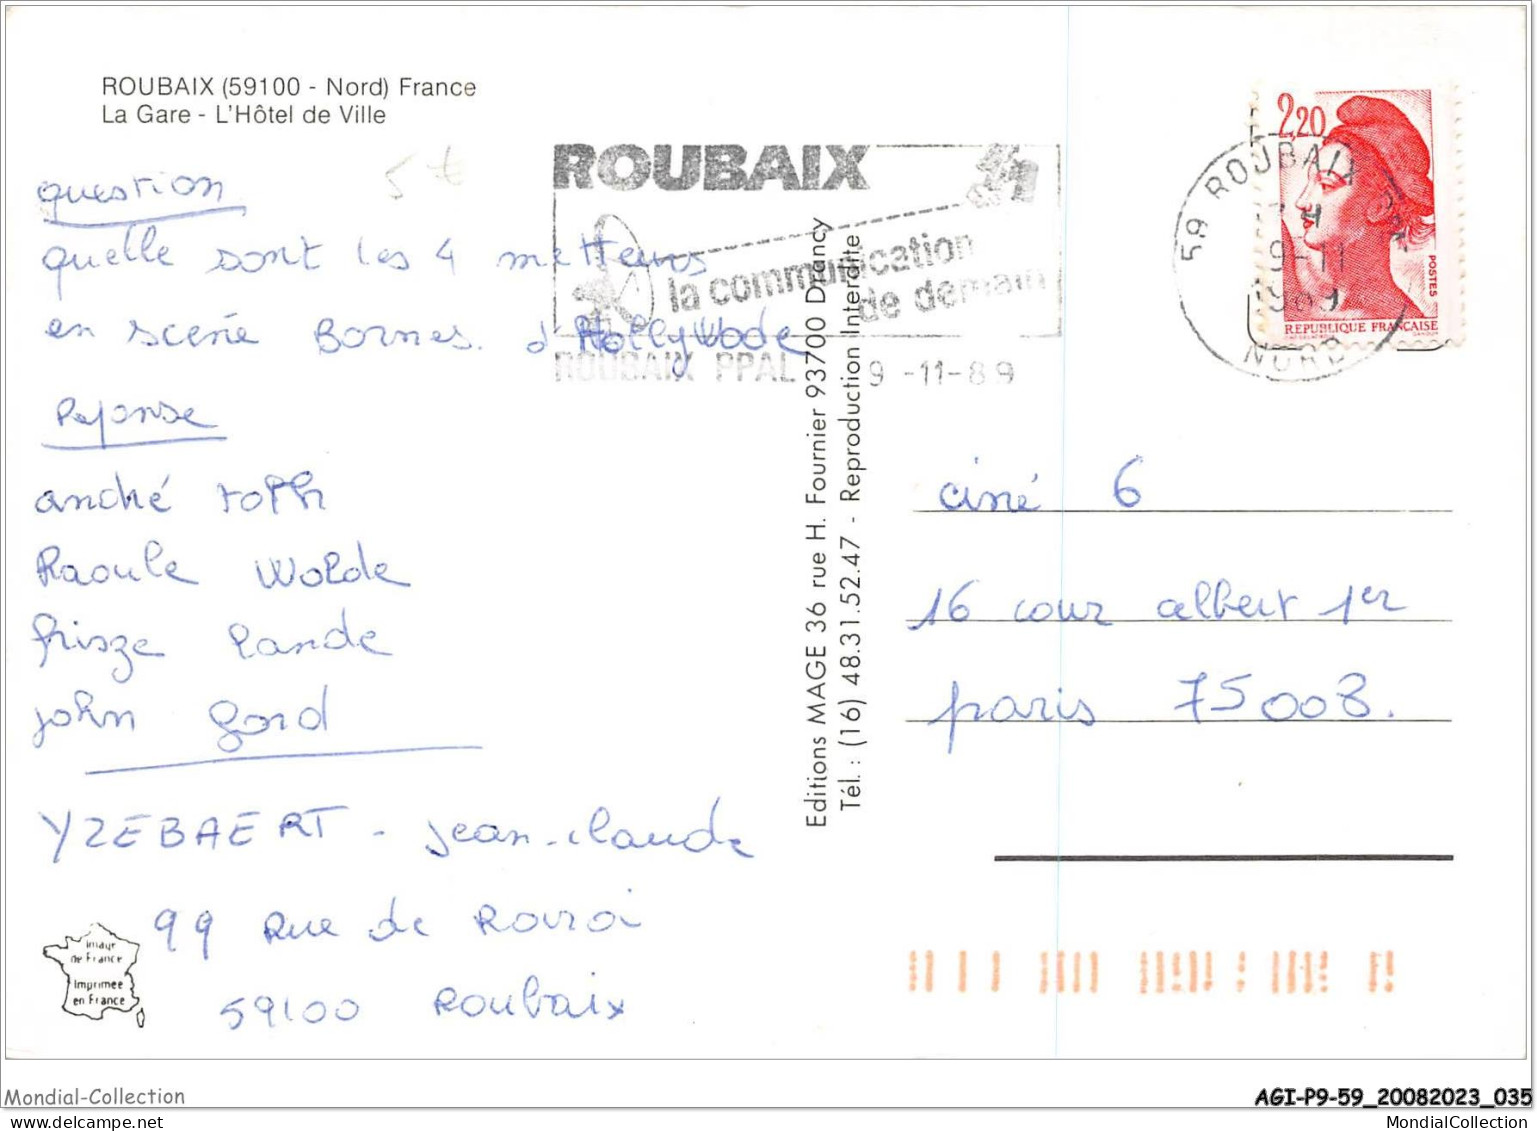 ROUBAIX (59100 - Nord) France
La Gare - L'Hôtel de Ville
5€
question
quelle sont les 4 metteurs
en scène Bornes. d'Hollywode
Reponse
andré toth
Raoule Wolde
frisze lande
john ford
YZEBAERT - jean-claude
99 Rue de Rocroi
59100 Roubaix
Image
de France
Imprimée
en France
ROUBAIX
la communication
de demain
ROUBAIX PPAL 9-11-89
Editions MAGE 36 rue H. Fournier 93700 Drancy
Tél. : (16) 48.31.52.47 - Reproduction Interdite
2,20
POSTES
REPUBLIQUE FRANÇAISE
59 ROUBAIX
9-11
1989
NORD
ciné 6
16 cour albert 1er
paris 75008.
Mondial-Collection
AGI-P9-59_20082023_035
MondialCollection